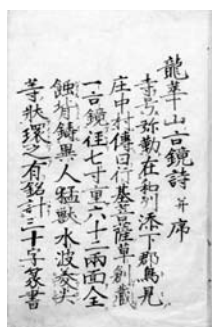 龍華山古鏡詩并序
寺号弥勒在和刕添下郡鳥見
庄中村傳曰行基菩薩草創藏
一古鏡徑七寸重六十二兩面全
蝕背鋳異人猛獣水波
等状環之有銘計三十字篆書